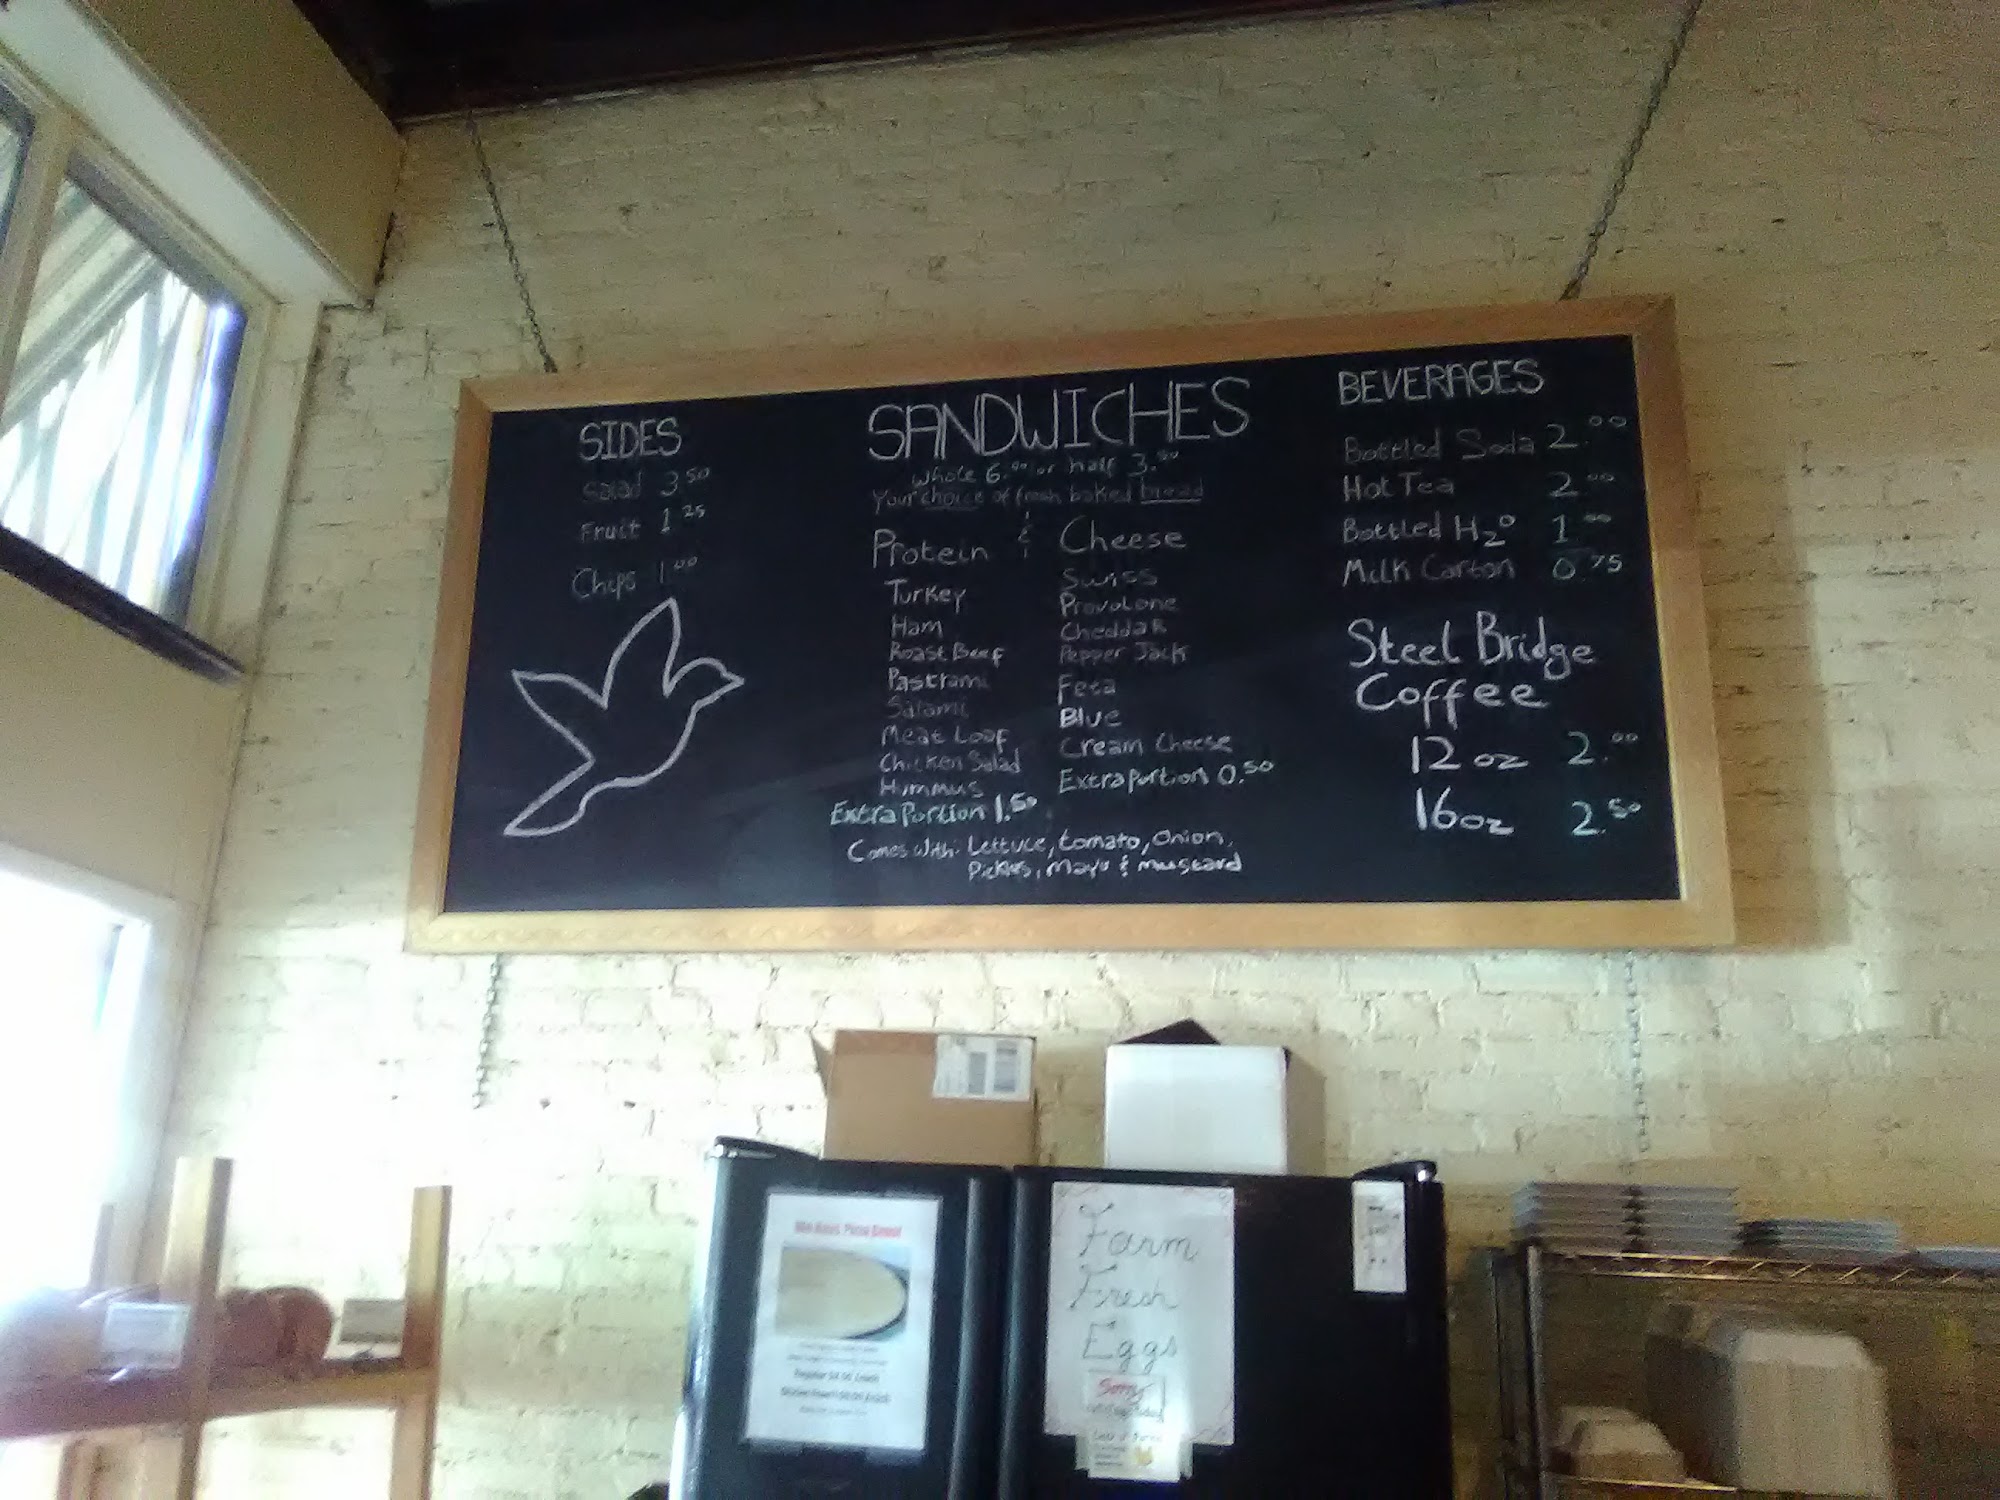 SIDES
Salad 3.50
Fruit 1.25
Chips 1.00
SANDWICHES
Whole 6.00 or half 3.50
Your choice of fresh baked bread
Protein & Cheese
Turkey
Ham
Roast Beef
Pastrami
Salami
Meat Loaf
Chicken Salad
Hummus
Extra Portion 1.50
Swiss
Provolone
Cheddar
Pepper Jack
Feta
Blue
Cream Cheese
Extra Portion 0.50
Comes with: Lettuce, tomato, Onion,
Pickles, Mayo & mustard
BEVERAGES
Bottled Soda 2.00
Hot Tea 2.00
Bottled H2O 1.00
Milk Carton 0.75
Steel Bridge
Coffee
12 oz 2.00
16 oz 2.50
Farm
Fresh
Eggs
Sorry